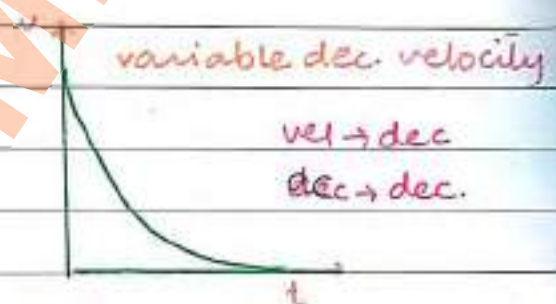 v
variable dec. velocity
vel → dec
dec → dec.
t